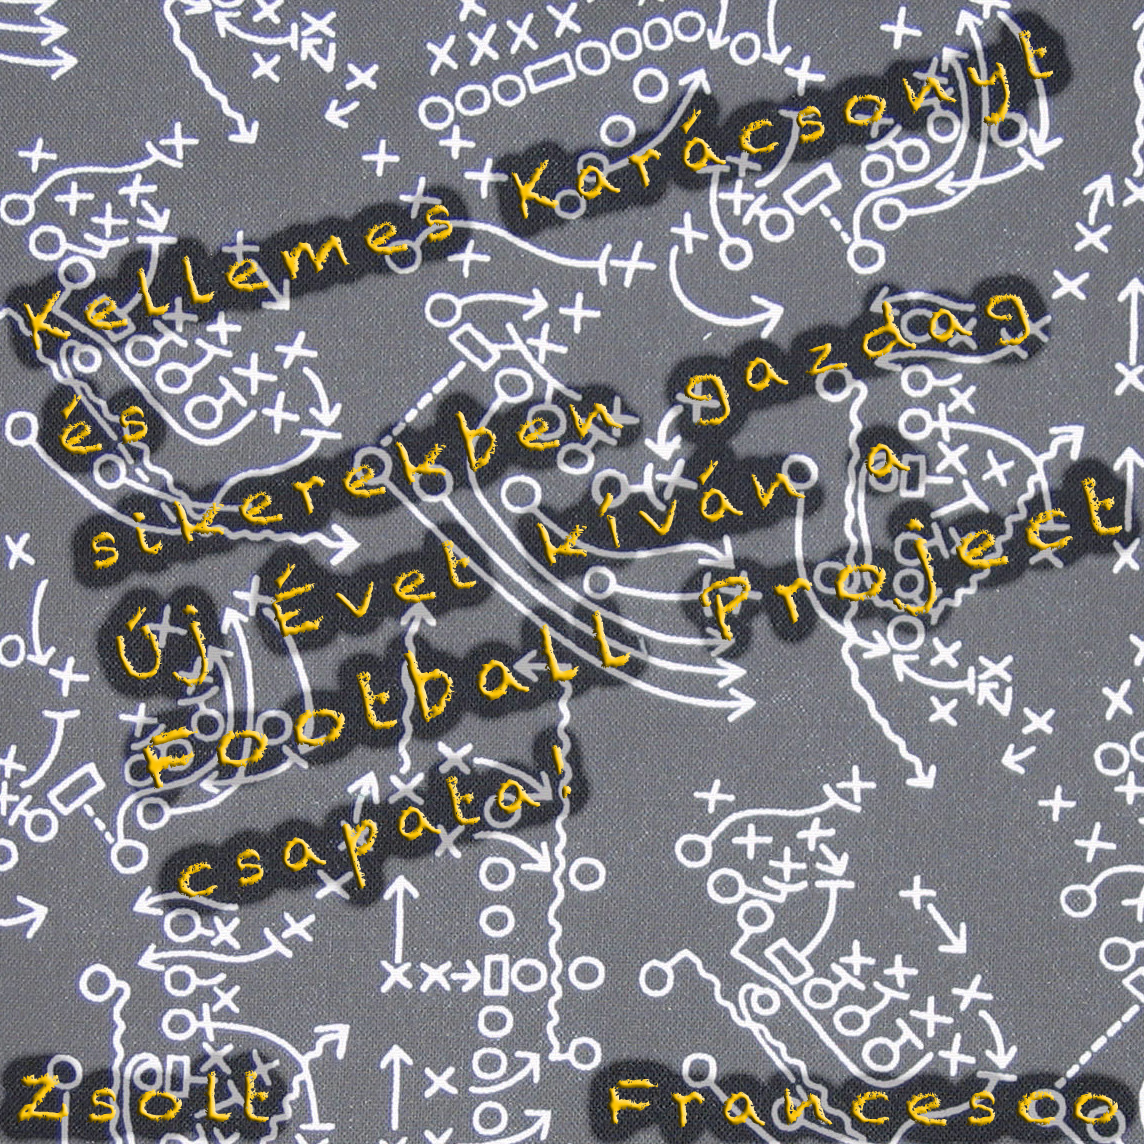 Kellemes Karácsonyt
és sikerekben gazdag
Új Évet kíván a
Football Project
csapata!
Zsolt
Francesco